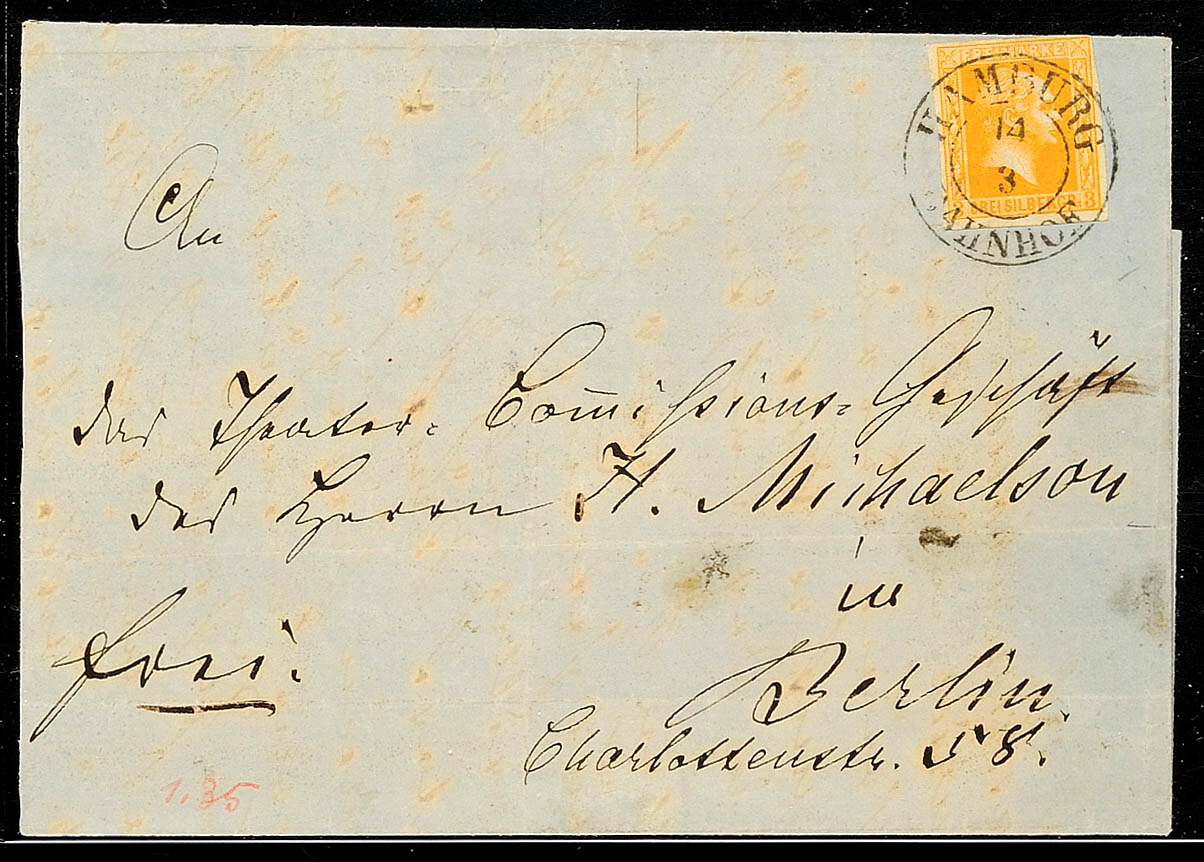 FREIMARKE
HAMBURG
14
3
BAHNHOF
3 DREI SILBERGR. 3
An
das Theater-Com̄issions-Geschäft
des Herrn H. Michaelson
in
frei.
Berlin.
Charlottenstr. 58.
1.35